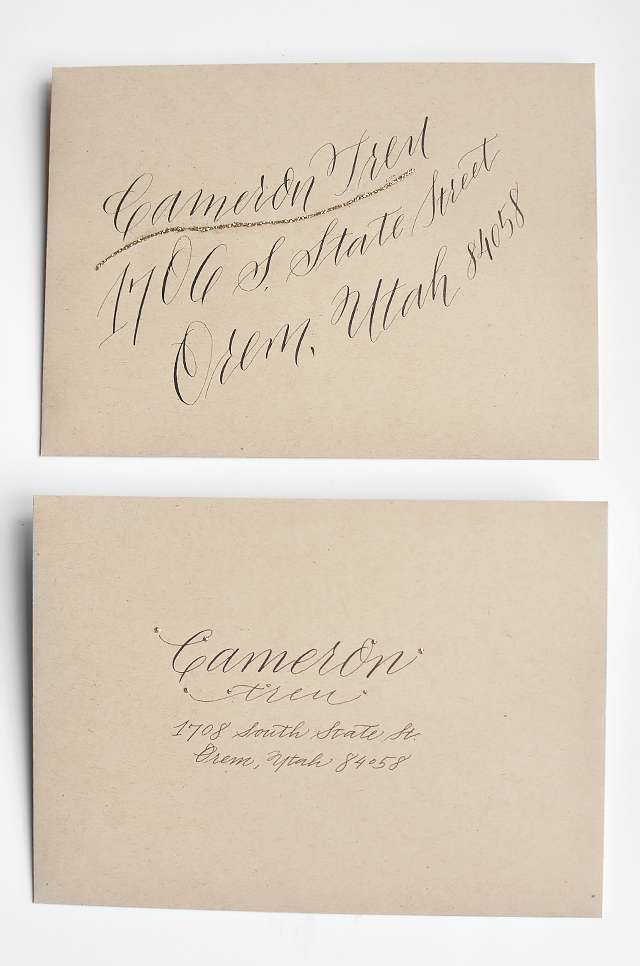 Cameron Treu
1706 S. State Street
Orem, Utah 84058
Cameron
treu
1708 South State St.
Orem, Utah 84058